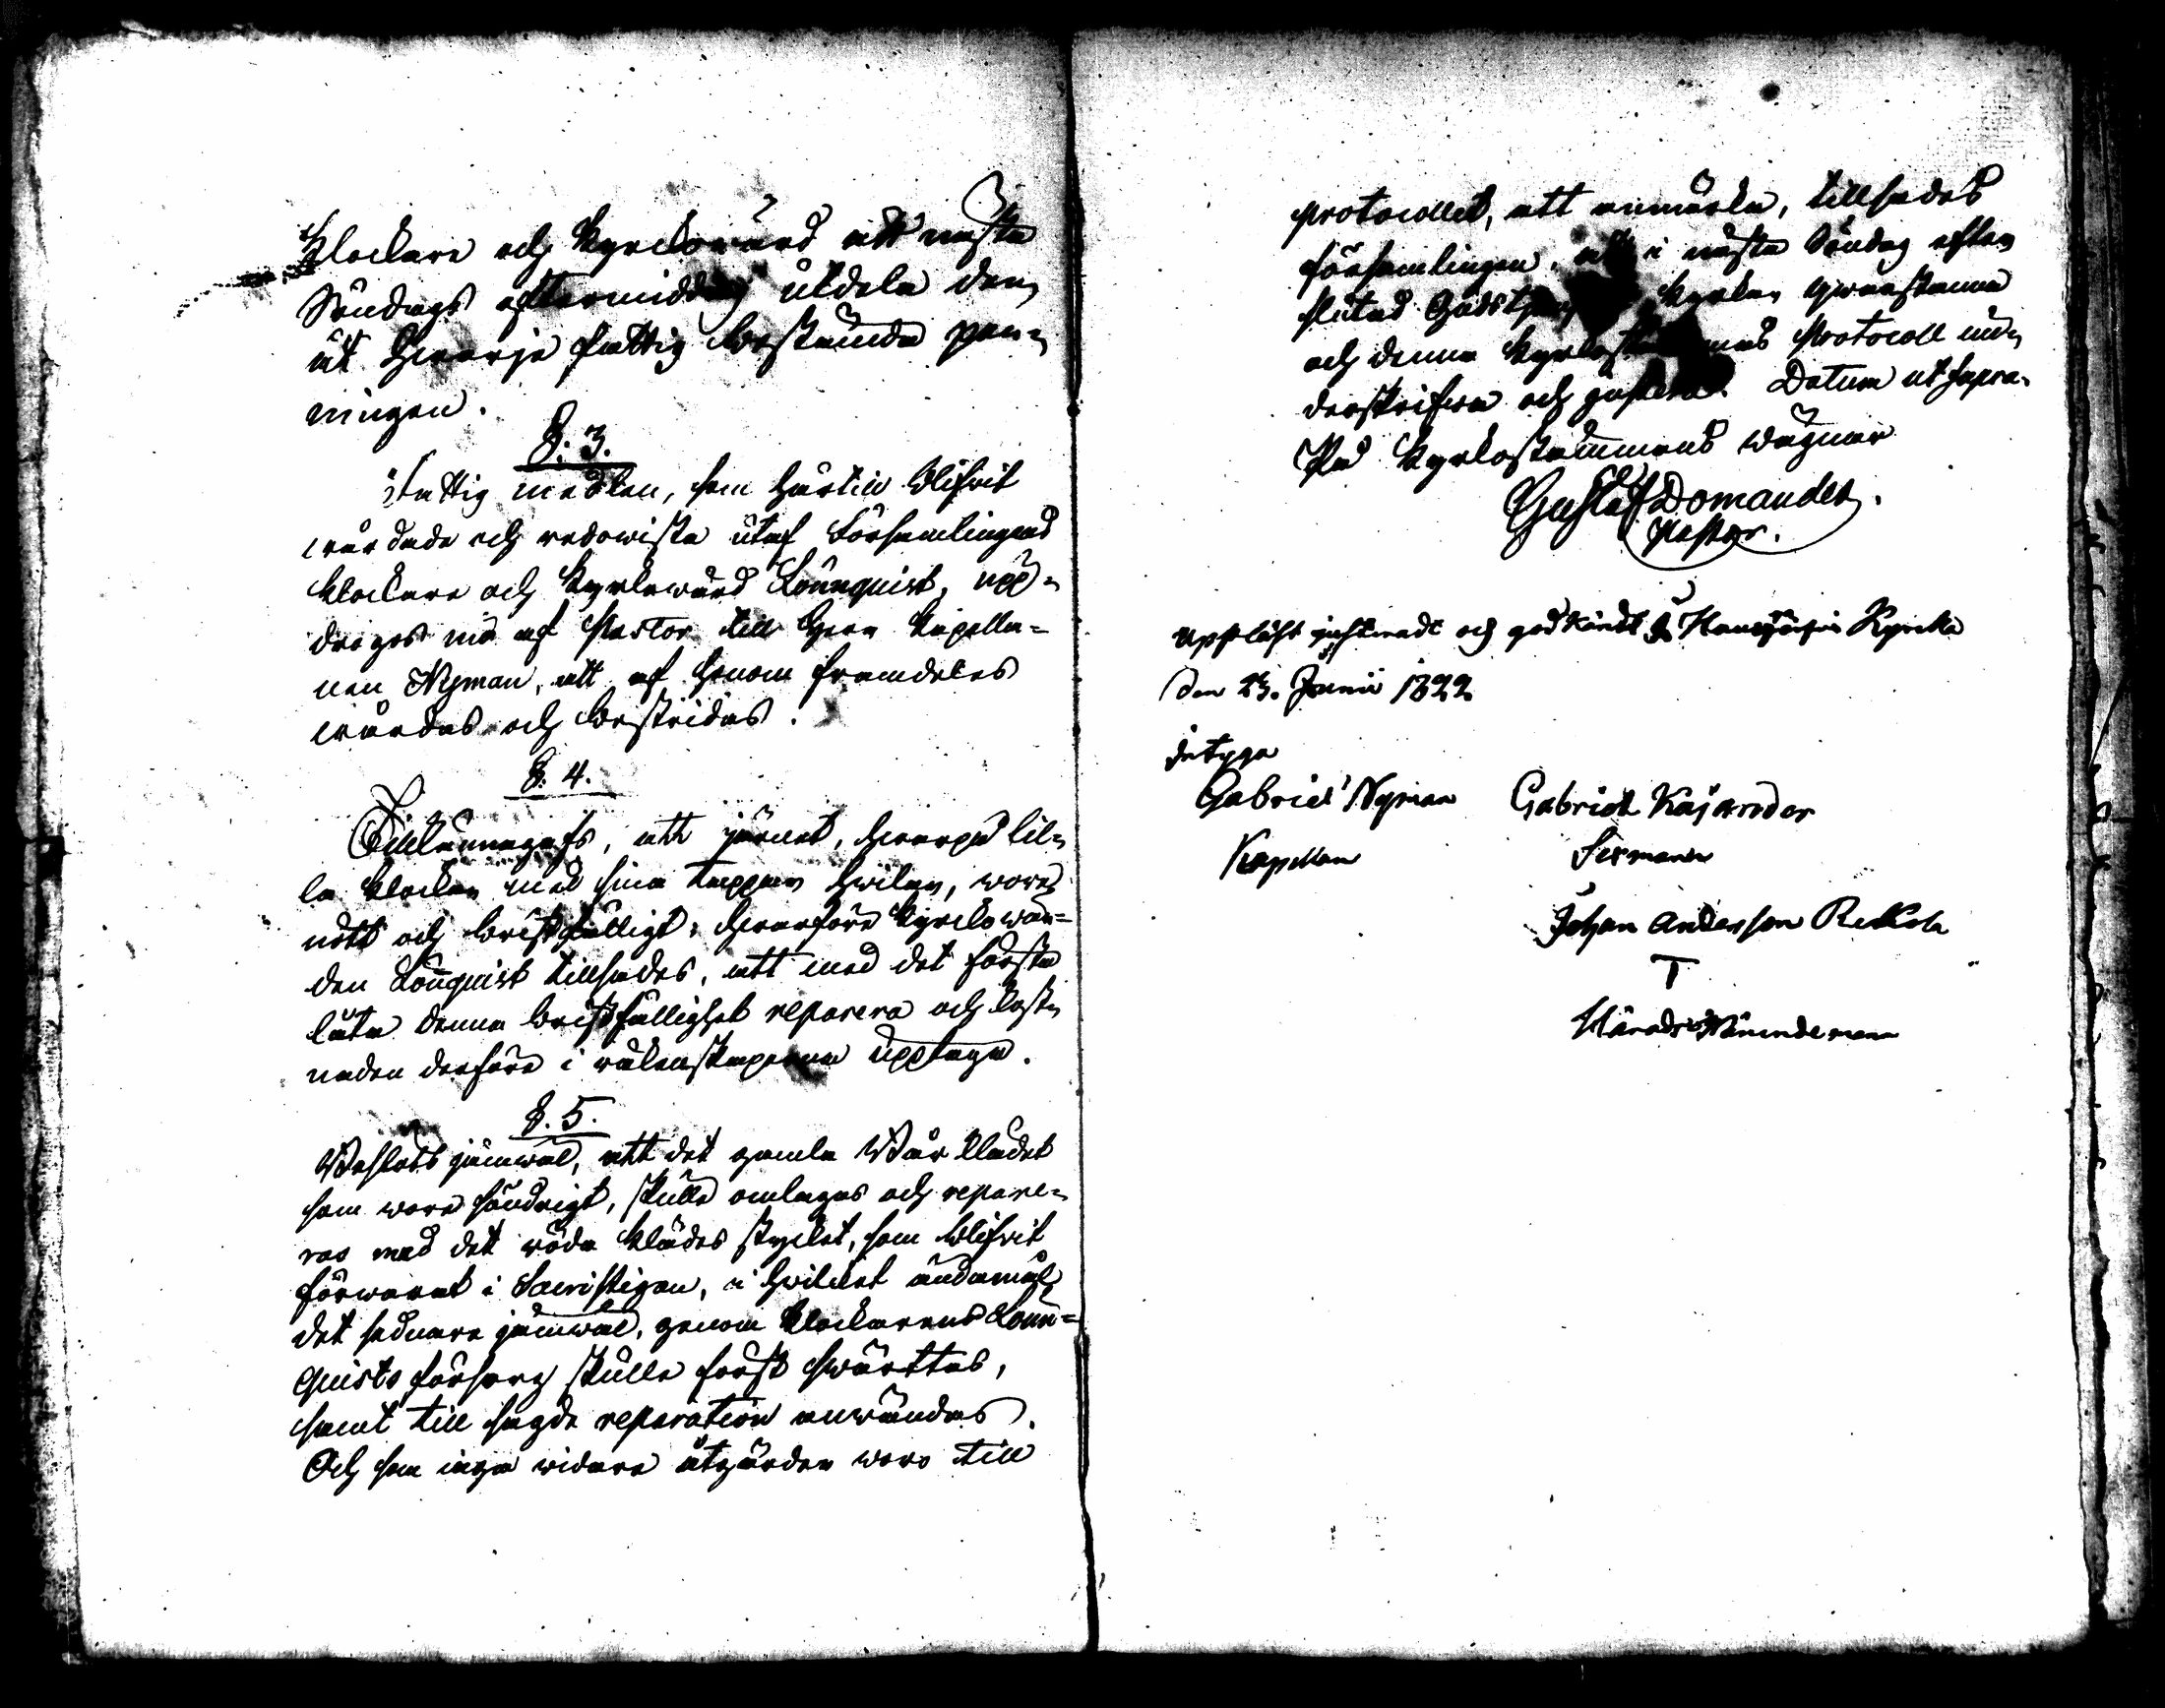 Klockare och Kyrckowärd att nästa
Söndags eftermiddag utdela den
åt hwarje fattig bestämda pen-
ningen.
§. 3.
Fattig medlen, som härtils blifvit
wårdade och redowista utaf Församlingens
klockare och kyrkewärd Lönnquist, upp-
droges nu af Pastor till Herr Capella-
nen Nyman, att af honom framdeles
wårdas och bestridas.
§. 4.
Tillkännagafs, att järnet, hwarpå lil-
la klockan med sina tappar hwilar, wore
nött och bristfälligt; hwarföre kyrckowär-
den Lönquist tillsades, att med det första
låta denna bristfällighet reparera och kost-
naden derföre i räkenskaperna upptaga.
§. 5.
Beslöts jämwäl, att det gamla Bår klädet
som wore söndrigt, skulle omlagas och repare-
ras med det röda klädes stycket, som blifvit
förwarat i Sacristigan, i hwilket ändamål
det sednare jämwäl, genom klockarens Lönn-
quists försorg skulle först swärttas,
samt till sagde reparation användas.
Och som inga widare åtgärder woro till
protocollet, att anmärka, tillsades
församlingen, att i nästa Söndag efter
slutad Gudstjenst Kyrkan qwarstanna
och denna kyrkostämmas Protocoll un-
derskrifwa och justera. Datum ut supra.
På kyrkostämmans wägnar
Gustaf Domander.
Pastor.
Uppläst justeradt och godkändt i Kyrcka
den 23. Junii 1822
betyga
Gabriel Nyman Gabriel
Kapellan Sexmann
Johan Andersson
T
Härads Nämndeman